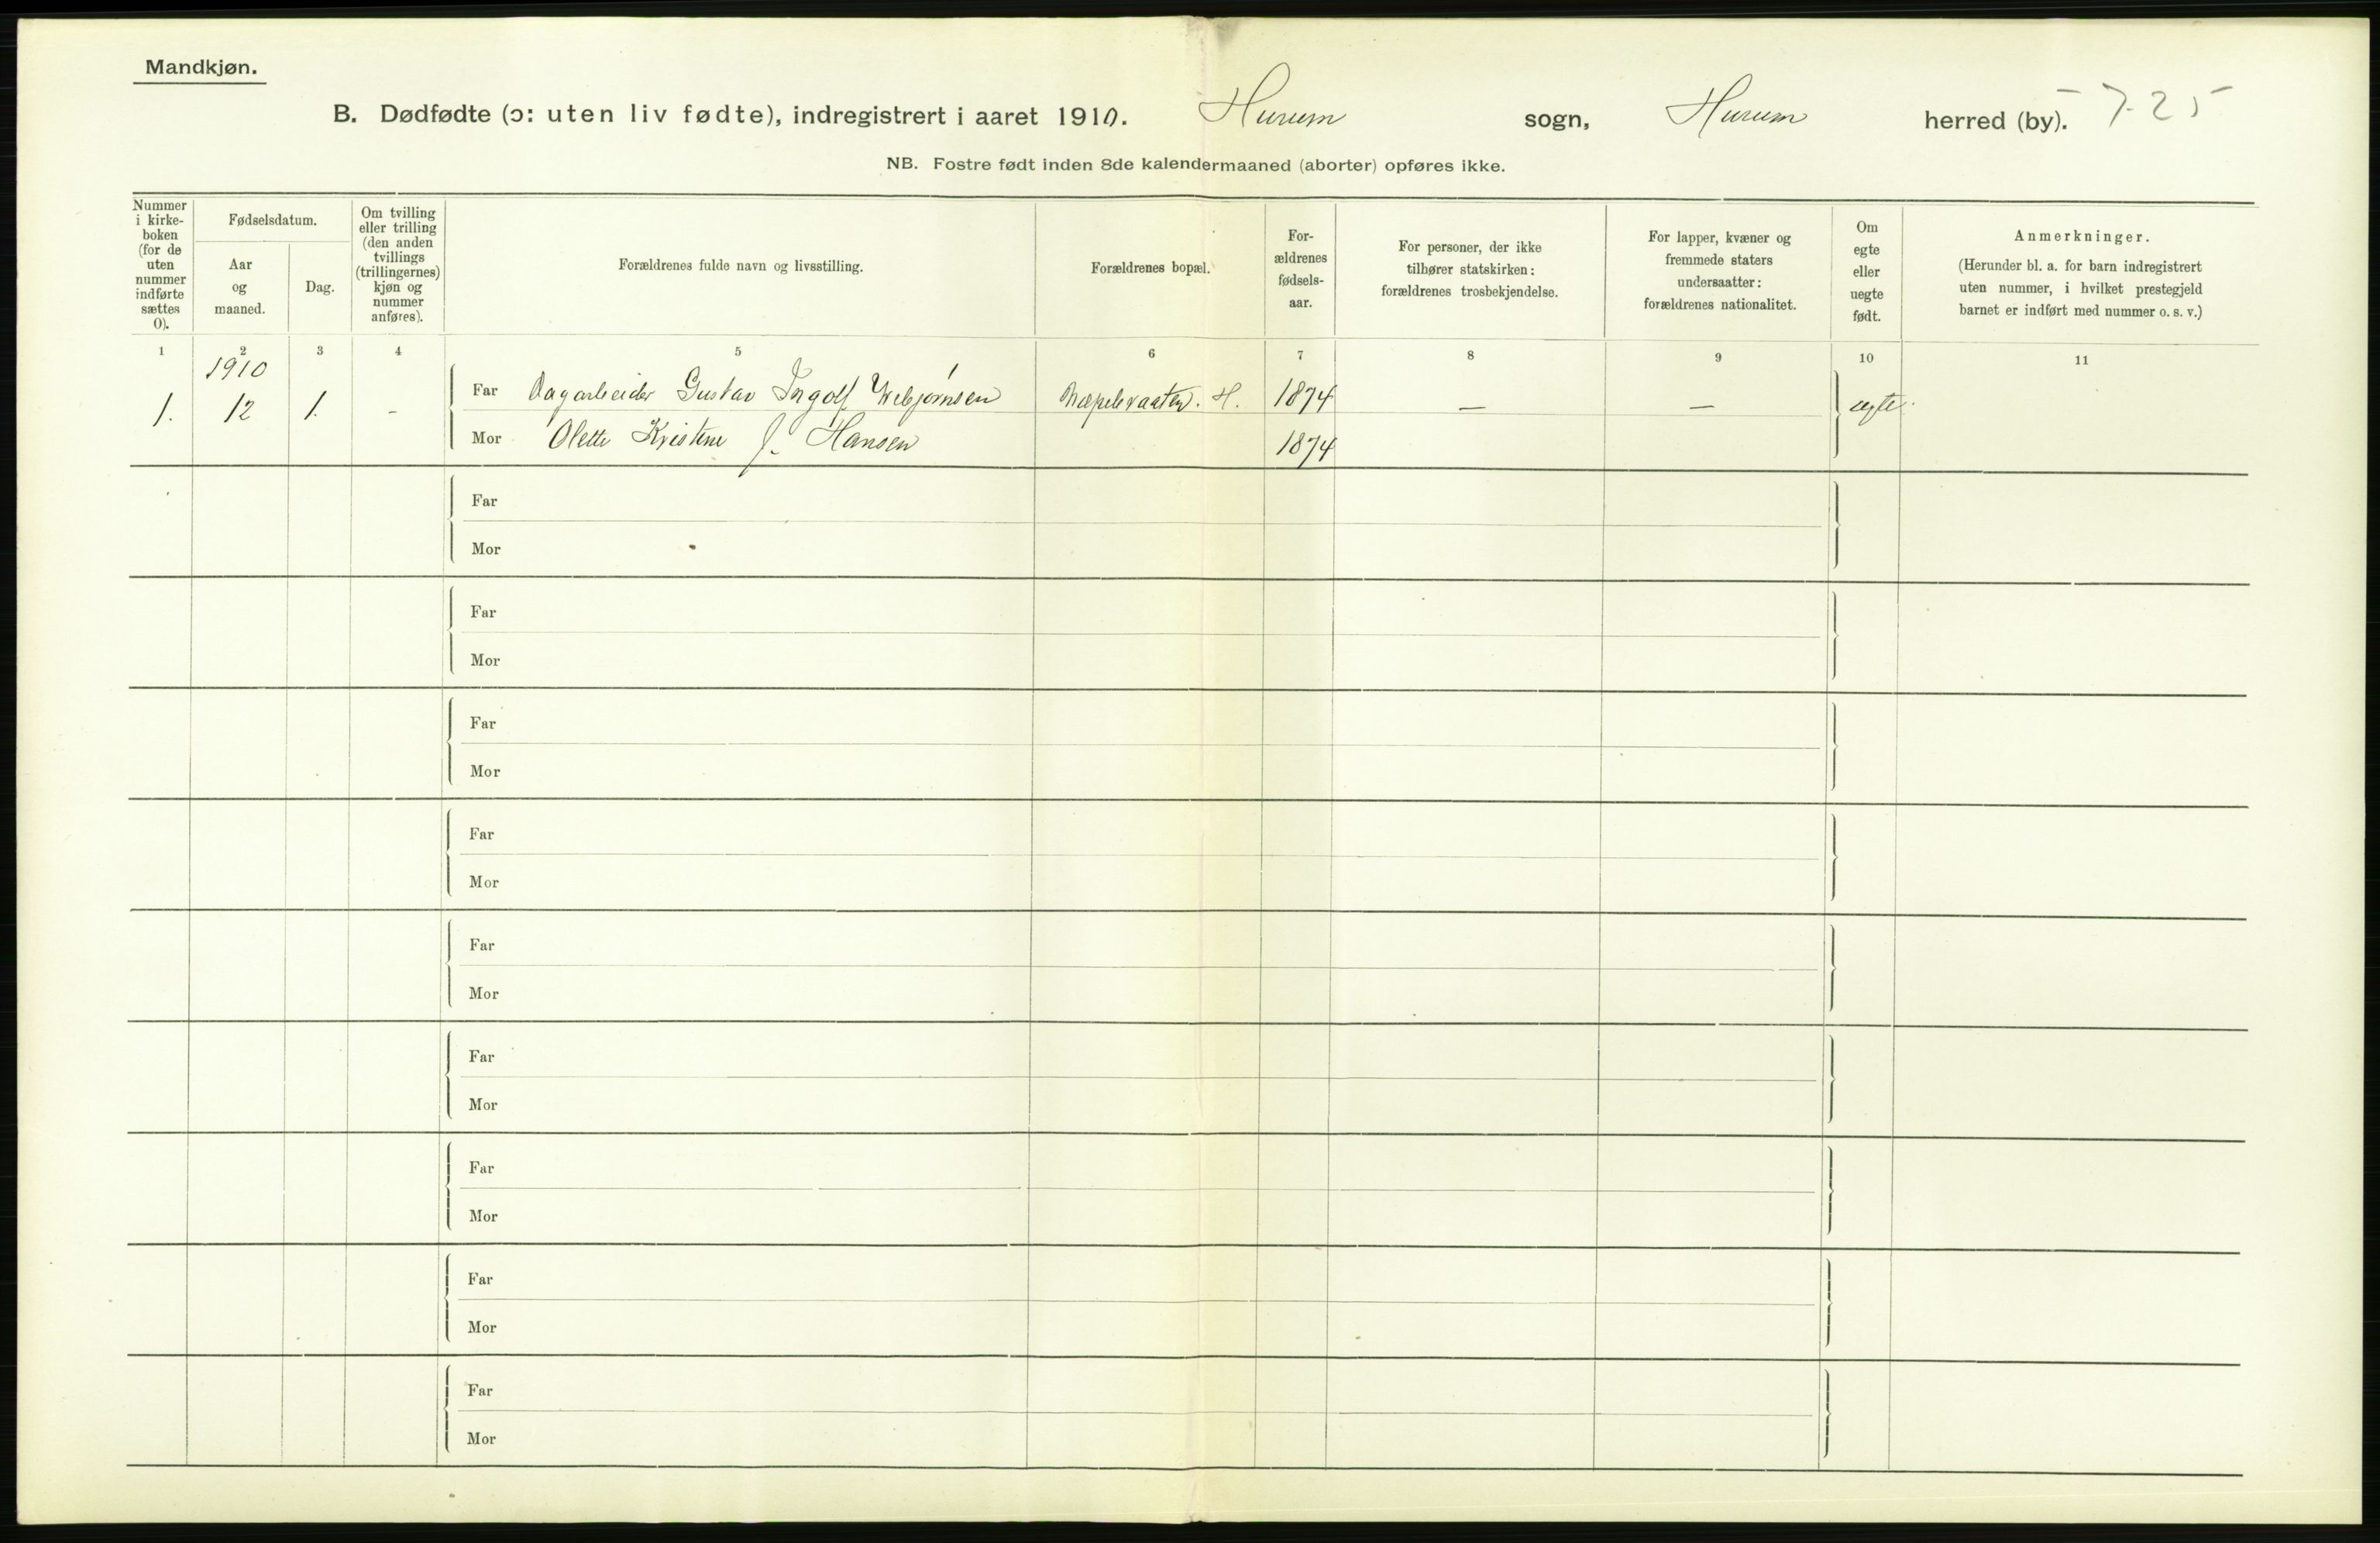 Mandkjøn.
B. Dødfødte (ɔ: uten liv fødte), indregistrert i aaret 1910. Hurum sogn, Hurum herred (by). 7-25
NB. Fostre født inden 8de kalendermaaned (aborter) opføres ikke.
Nummer
i kirke-
boken
(for de
uten
nummer
indførte
sættes
0).
Fødselsdatum.
Aar
og
maaned.
Dag.
Om tvilling
eller trilling
(den anden
tvillings
(trillingernes)
kjøn og
nummer
anføres).
Forældrenes fulde navn og livsstilling.
Forældrenes bopæl.
For-
ældrenes
fødsels-
aar.
For personer, der ikke
tilhører statskirken:
forældrenes trosbekjendelse.
For lapper, kvæner og
fremmede staters
undersaatter:
forældrenes nationalitet.
Om
egte
eller
uegte
født.
Anmerkninger.
(Herunder bl. a. for barn indregistrert
uten nummer, i hvilket prestegjeld
barnet er indført med nummer o. s. v.)
1 2 3 4 5 6 7 8 9 10 11
1910
1. 12 1. - Far Dagarbeider Gustav Ingolf H. 1874 — — egte.
Mor Olette Kristine J. Hansen 1874
Far
Mor
Far
Mor
Far
Mor
Far
Mor
Far
Mor
Far
Mor
Far
Mor
Far
Mor
Far
Mor